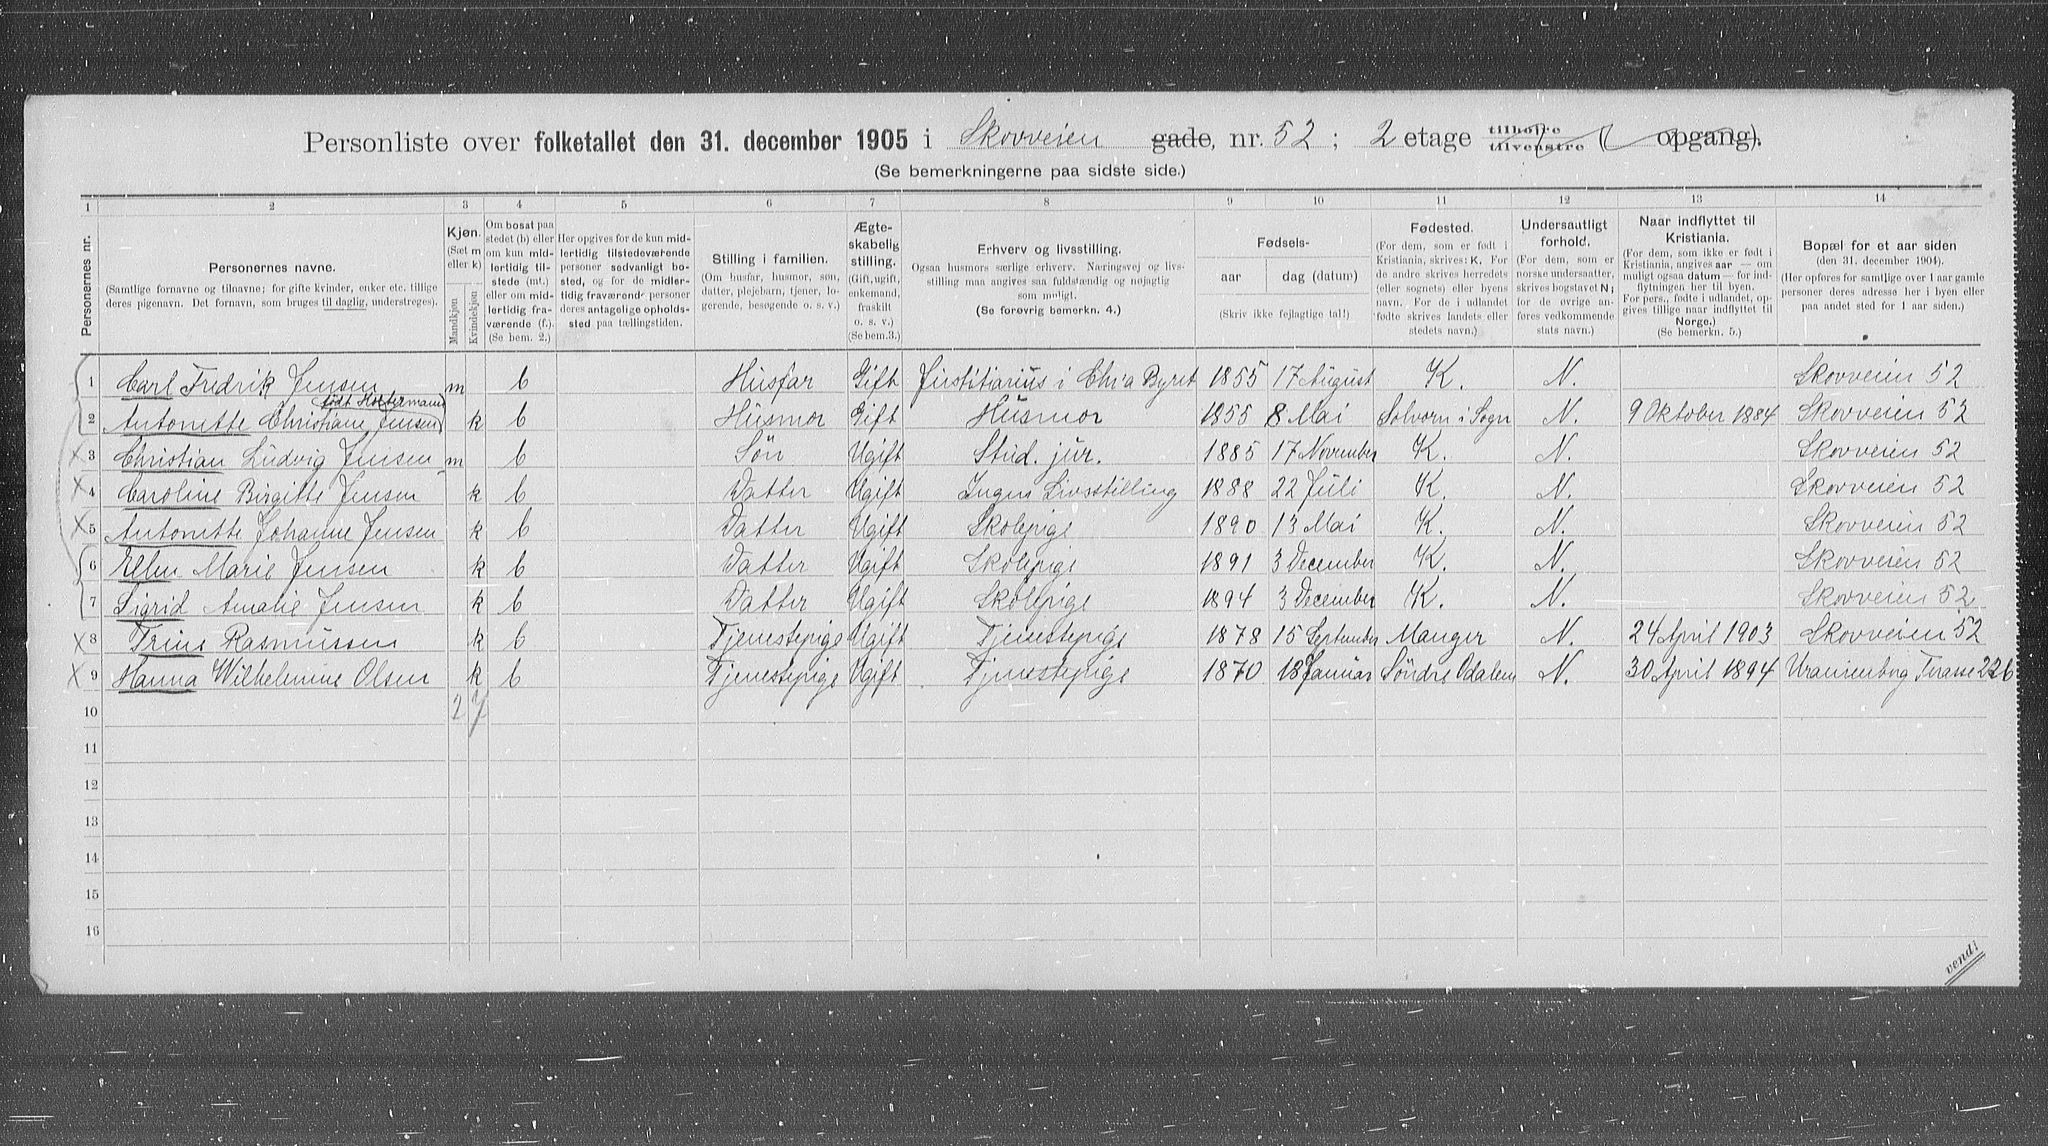 Personliste over folketallet den 31. december 1905 i Skovveien gade, nr. 52 ; 2 etage tilhøjre tilvenstre ( opgang).
(Se bemerkningerne paa sidste side.)
1 2 3 4 5 6 7 8 9 10 11 12 13 14
Personernes nr.
Personernes navne.
(Samtlige fornavne og tilnavne; for gifte kvinder, enker etc. tillige
deres pigenavn. Det fornavn, som bruges til daglig, understreges).
Kjøn.
(Sæt m
eller k)
Mandkjøn
Kvindekjøn
Om bosat paa
stedet (b) eller
om kun mid-
lertidig til-
stede (mt.)
eller om mid-
lertidig fra-
værende (f.).
(Se bem. 2.)
Her opgives for de kun mid-
lertidig tilstedeværende
personer sedvanligt bo-
sted, og for de midler-
tidig fraværende personer
deres antagelige opholds-
sted paa tællingstiden.
Stilling i familien.
(Om husfar, husmor, søn,
datter, plejebarn, tjener, lo-
gerende, besøgende o. s. v.)
Ægte-
skabelig
stilling.
(Gift, ugift,
enkemand,
fraskilt
o. s. v.)
(Se bem.3.)
Erhverv og livsstilling.
Ogsaa husmors særlige erhverv. Næringsvej og livs-
stilling maa angives saa fuldstændig og nøjagtig
som muligt.
(Se forøvrig bemerkn. 4.)
Fødsels-
aar dag (datum)
(Skriv ikke fejlagtige tal!)
Fødested.
(For dem, som er født i
Kristiania, skrives: K. For
de andre skrives herredets
(eller sognets) eller byens
navn. For de i udlandet
fødte skrives landets eller
stedets navn.)
Undersaatligt
forhold.
(For dem, som er
norske undersaatter,
skrives bogstavet N;
for de øvrige an-
føres vedkommende
stats navn.)
Naar indflyttet til
Kristiania.
(For dem, som ikke er født i
Kristiania, angives aar — om
muligt ogsaa datum — for ind-
flytningen her til byen.
For pers., fødte i udlandet, op-
gives tillige naar indflyttet til
Norge.)
(Se bemerkn. 5.)
Bopæl for et aar siden
(den 31. december 1904).
(Her opføres for samtlige over 1 aar gamle
personer deres adresse her i byen eller
paa andet sted for 1 aar siden.)
1 Carl Fredrik Jensen m b Husfar Gift Justitiarius i Chr'a Byret 1855 17 August K. N. Skovveien 52
født Holtermann
2 Antonette Christiane Jensen k b Husmor Gift Husmor 1855 8 Mai Solvorn i Sogn N. 9 Oktober 1884 Skovveien 52
3 Christian Ludvig Jensen m b Søn Ugift Stud. jur. 1885 17 November K. N. Skovveien 52
4 Caroline Birgitte Jensen k b Datter Ugift Ingen Livsstilling 1888 22 Juli K. N. Skovveien 52
5 Antonette Johanne Jensen k b Datter Ugift Skolepige 1890 13 Mai K. N. Skovveien 52
6 Ellen Marie Jensen k b Datter Ugift Skolepige 1891 3 December K. N. Skovveien 52
7 Sigrid Amalie Jensen k b Datter Ugift Skolepige 1894 3 December K. N. Skovveien 52
8 Trine Rasmussen k b Tjenestepige Ugift Tjenestepige 1878 15 September Manger N. 24 April 1903 Skovveien 52
9 Hanna Wilhelmine Olsen k b Tjenestepige Ugift Tjenestepige 1870 18 Januar Söndre Odalen N. 30 April 1894 Uranienborg Terasse
10 2 7
11
12
13
14
15
16
vend!